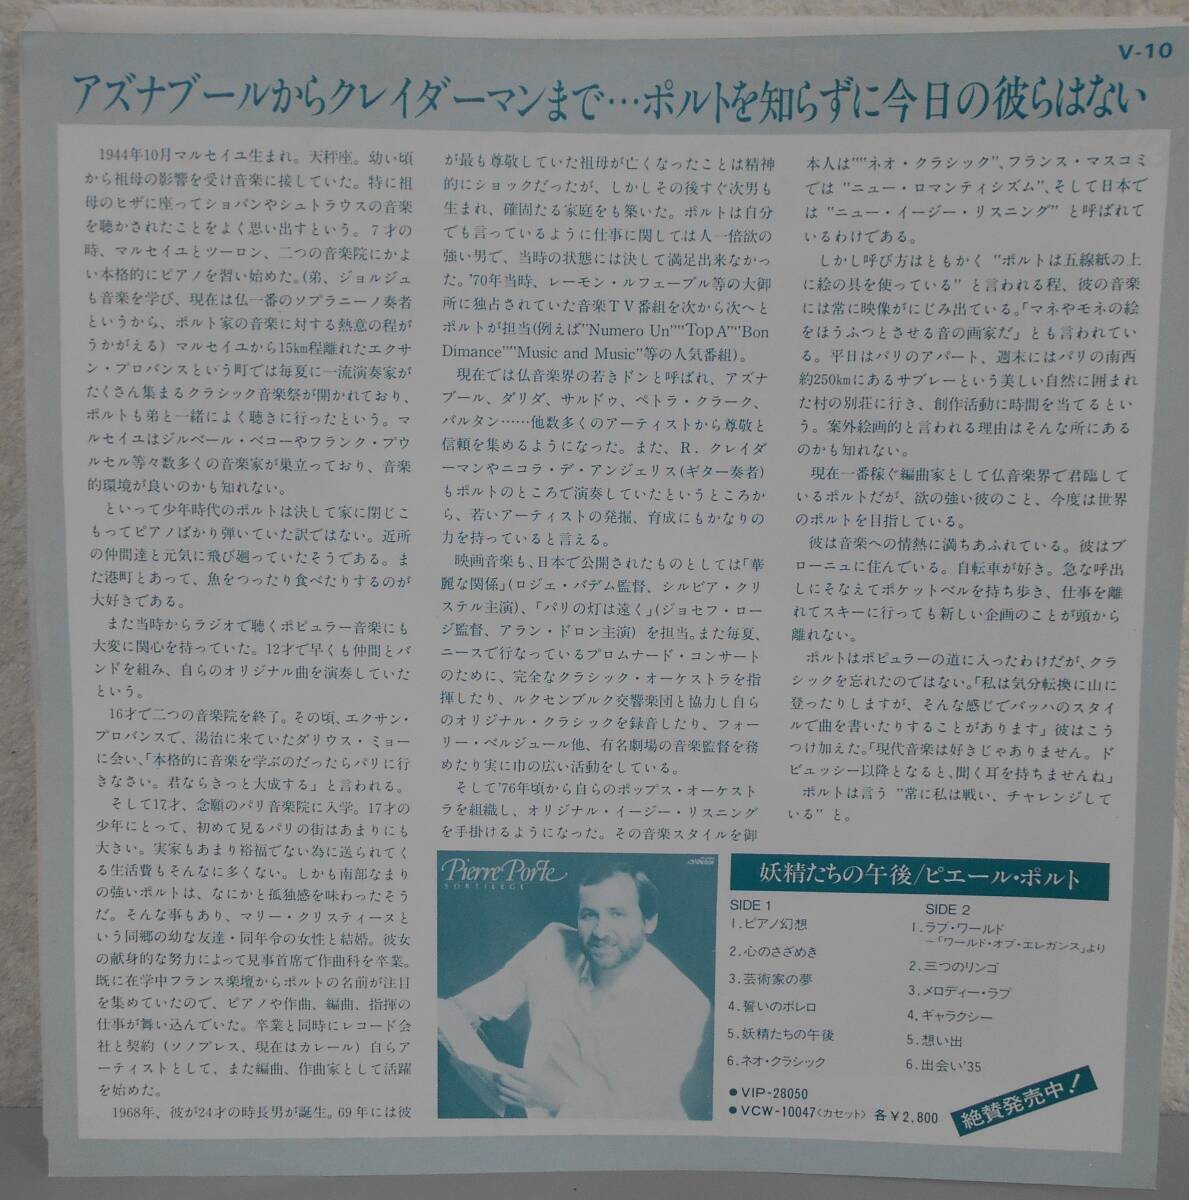 V-10
アズナブールからクレイダーマンまで…ポルトを知らずに今日の彼らはない
1944年10月マルセイユ生まれ。天秤座。幼い頃
から祖母の影響を受け音楽に接していた。特に祖
母のヒザに座ってショパンやシュトラウスの音楽
を聴かされたことをよく思い出すという。7才の
時、マルセイユとツーロン、二つの音楽院にかよ
い本格的にピアノを習い始めた。(弟、ジョルジュ
も音楽を学び、現在は仏一番のソプラニーノ奏者
というから、ポルト家の音楽に対する熱意の程が
うかがえる) マルセイユから15km程離れたエクサ
ン・プロバンスという町では毎夏に一流演奏家が
たくさん集まるクラシック音楽祭が開かれており、
ポルトも弟と一緒によく聴きに行ったという。マ
ルセイユはジルベール・ベコーやフランク・プウ
ルセル等々数多くの音楽家が巣立っており、音楽
的環境が良いのかも知れない。
といって少年時代のポルトは決して家に閉じこ
もってピアノばかり弾いていた訳ではない。近所
の仲間達と元気に飛び廻っていたそうである。ま
た港町とあって、魚をつったり食べたりするのが
大好きである。
また当時からラジオで聴くポピュラー音楽にも
大変に関心を持っていた。12才で早くも仲間とバ
ンドを組み、自らのオリジナル曲を演奏していた
という。
16才で二つの音楽院を終了。その頃、エクサン・
プロバンスで、湯治に来ていたダリウス・ミョー
に会い、「本格的に音楽を学ぶのだったらパリに行
きなさい。君ならきっと大成する」と言われる。
そして17才、念願のパリ音楽院に入学。17才の
少年にとって、初めて見るパリの街はあまりにも
大きい。実家もあまり裕福でない為に送られてく
る生活費もそんなに多くない。しかも南部なまり
の強いポルトは、なにかと孤独感を味わったそう
だ。そんな事もあり、マリー・クリスティーヌと
いう同郷の幼な友達・同年令の女性と結婚。彼女
の献身的な努力によって見事首席で作曲科を卒業。
既に在学中フランス楽壇からポルトの名前が注目
を集めていたので、ピアノや作曲、編曲、指揮の
仕事が舞い込んでいた。卒業と同時にレコード会
社と契約 (ソノプレス、現在はカレール) 自らアー
ティストとして、また編曲、作曲家として活躍
を始めた。
1968年、彼が24才の時長男が誕生。69年には彼
が最も尊敬していた祖母が亡くなったことは精神
的にショックだったが、しかしその後すぐ次男も
生まれ、確固たる家庭をも築いた。ポルトは自分
でも言っているように仕事に関しては人一倍欲の
強い男で、当時の状態には決して満足出来なかっ
た。'70年当時、レーモン・ルフェーブル等の大御
所に独占されていた音楽TV番組を次から次へと
ポルトが担当(例えば"Numero Un""Top A""Bon
Dimance""Music and Music"等の人気番組)。
現在では仏音楽界の若きドンと呼ばれ、アズナ
ブール、ダリダ、サルドゥ、ペトラ・クラーク、
バルタン……他数多くのアーティストから尊敬と
信頼を集めるようになった。また、R. クレイダ
ーマンやニコラ・デ・アンジェリス(ギター奏者)
もポルトのところで演奏していたというところか
ら、若いアーティストの発掘、育成にもかなりの
力を持っていると言える。
映画音楽も、日本で公開されたものとしては「華
麗な関係」(ロジェ・バデム監督、シルビア・クリ
ステル主演)、「パリの灯は遠く」(ジョセフ・ロー
ジ監督、アラン・ドロン主演) を担当。また毎夏、
ニースで行なっているプロムナード・コンサート
のために、完全なクラシック・オーケストラを指
揮したり、ルクセンブルク交響楽団と協力し自ら
のオリジナル・クラシックを録音したり、フォー
リー・ベルジュール他、有名劇場の音楽監督を務
めたり実に巾の広い活動をしている。
そして'76年頃から自らのポップス・オーケスト
ラを組織し、オリジナル・イージー・リスニング
を手掛けるようになった。その音楽スタイルを御
本人は""ネオ・クラシック"、フランス・マスコミ
では "ニュー・ロマンティシズム"、そして日本で
は "ニュー・イージー・リスニング" と呼ばれて
いるわけである。
しかし呼び方はともかく "ポルトは五線紙の上
に絵の具を使っている" と言われる程、彼の音楽
には常に映像がにじみ出ている。「マネやモネの絵
をほうふつとさせる音の画家だ」とも言われてい
る。平日はパリのアパート、週末にはパリの南西
約250kmにあるサブレーという美しい自然に囲まれ
た村の別荘に行き、創作活動に時間を当てるとい
う。案外絵画的と言われる理由はそんな所にある
のかも知れない。
現在一番稼ぐ編曲家として仏音楽界で君臨して
いるポルトだが、欲の強い彼のこと、今度は世界
のポルトを目指している。
彼は音楽への情熱に満ちあふれている。彼はブ
ローニュに住んでいる。自転車が好き。急な呼出
しにそなえてポケットベルを持ち歩き、仕事を離
れてスキーに行っても新しい企画のことが頭から
離れない。
ポルトはポピュラーの道に入ったわけだが、クラ
シックを忘れたのではない。「私は気分転換に山に
登ったりしますが、そんな感じでバッハのスタイ
ルで曲を書いたりすることがあります」彼はこう
つけ加えた。「現代音楽は好きじゃありません。ド
ビュッシー以降となると、聞く耳を持ちませんね」
ポルトは言う "常に私は戦い、チャレンジして
いる" と。
Pierre Porte
SORTILEGE
妖精たちの午後/ピエール・ポルト
SIDE 1
1.ピアノ幻想
2.心のさざめき
3.芸術家の夢
4.誓いのボレロ
5.妖精たちの午後
6.ネオ・クラシック
SIDE 2
1.ラブ・ワールド
～「ワールド・オブ・エレガンス」より
2.三つのリンゴ
3.メロディー・ラブ
4.ギャラクシー
5.想い出
6.出会い'35
●VIP-28050
●VCW-10047〈カセット〉各¥2,800
絶賛発売中!